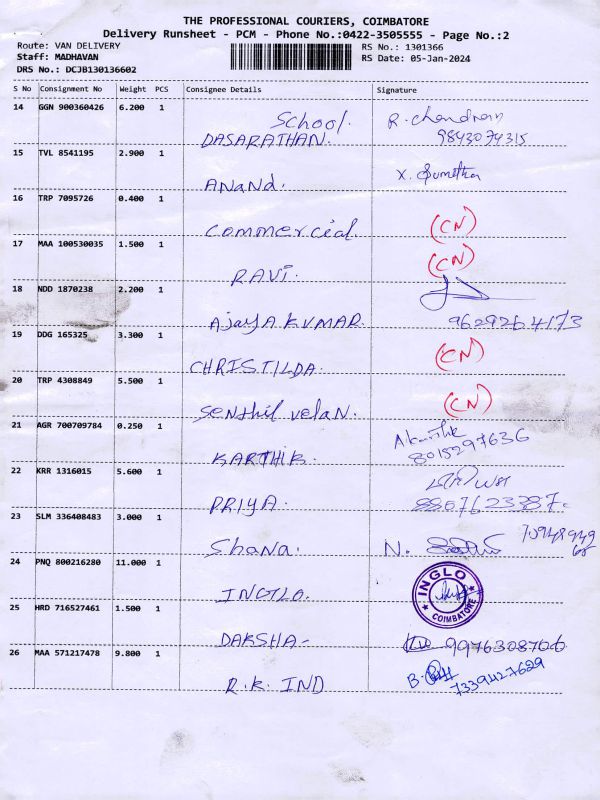 THE PROFESSIONAL COURIERS, COIMBATORE
Delivery Runsheet - PCM - Phone No.:0422-3505555 - Page No.:2
Route: VAN DELIVERY
RS No.: 1301366
Staff: MADHAVAN
RS Date: 05-Jan-2024
DRS No.: DCJB130136602
S No Consignment No Weight PCS Consignee Details Signature
14 GGN 900360426 6.200 1
School. R. chandran
DASARATHAN. 9843074315
15 TVL 8541195 2.900 1
Anand. X. Sumathra
16 TRP 7095726 0.400 1
Commercial (CN)
17 MAA 100530035 1.500 1
RAVI. (CN)
18 NDD 1870238 2.200 1
AjayA KUMAR. 9629264173
19 DDG 165325 3.300 1
CHRISTILDA. (CN)
20 TRP 4308849 5.500 1
Senthil velan. (CN)
21 AGR 700709784 0.250 1
KARTHIK. 8015297636
22 KRR 1316015 5.600 1
PRIYA. 8807623387
23 SLM 336408483 3.000 1
Shana. N. 70948949
68
24 PNQ 800216280 11.000 1
INGLO. INGLO COIMBATORE
25 HRD 716527461 1.500 1
DAKSHA- 9976308706
26 MAA 571217478 9.800 1
R.K. IND B. 7339427629